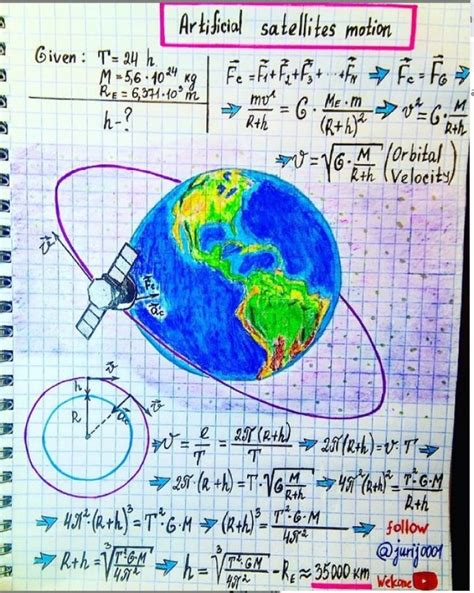 Artificial satellites motion
Given: T=24 h
M=5,6·10²⁴ kg
R_E=6,371·10³ m
h-?
F⃗c=F⃗₁+F⃗₂+F⃗₃+···+F⃗N ⇒ F⃗c=F⃗G ⇒
⇒ mv²/(R+h) = G·(M_E·m)/(R+h)² ⇒ v²=G·M/(R+h)
⇒ v=√(G·M/(R+h)) (Orbital Velocity)
v⃗
F⃗c
a⃗c
h v⃗
R a⃗c v⃗
⇒ v=l/T=2π(R+h)/T ⇒ 2π(R+h)=v·T ⇒
⇒ 2π·(R+h)=T·√(G·M/(R+h)) ⇒ 4π²(R+h)²=T²·G·M/(R+h)
⇒ 4π²·(R+h)³=T²·G·M ⇒ (R+h)³=T²·G·M/4π² ⇒
⇒ R+h=³√(T²·G·M/4π²) ⇒ h=³√(T²·GM/4π²)-R_E≈35000 km
follow
@jurij0001
Welcome